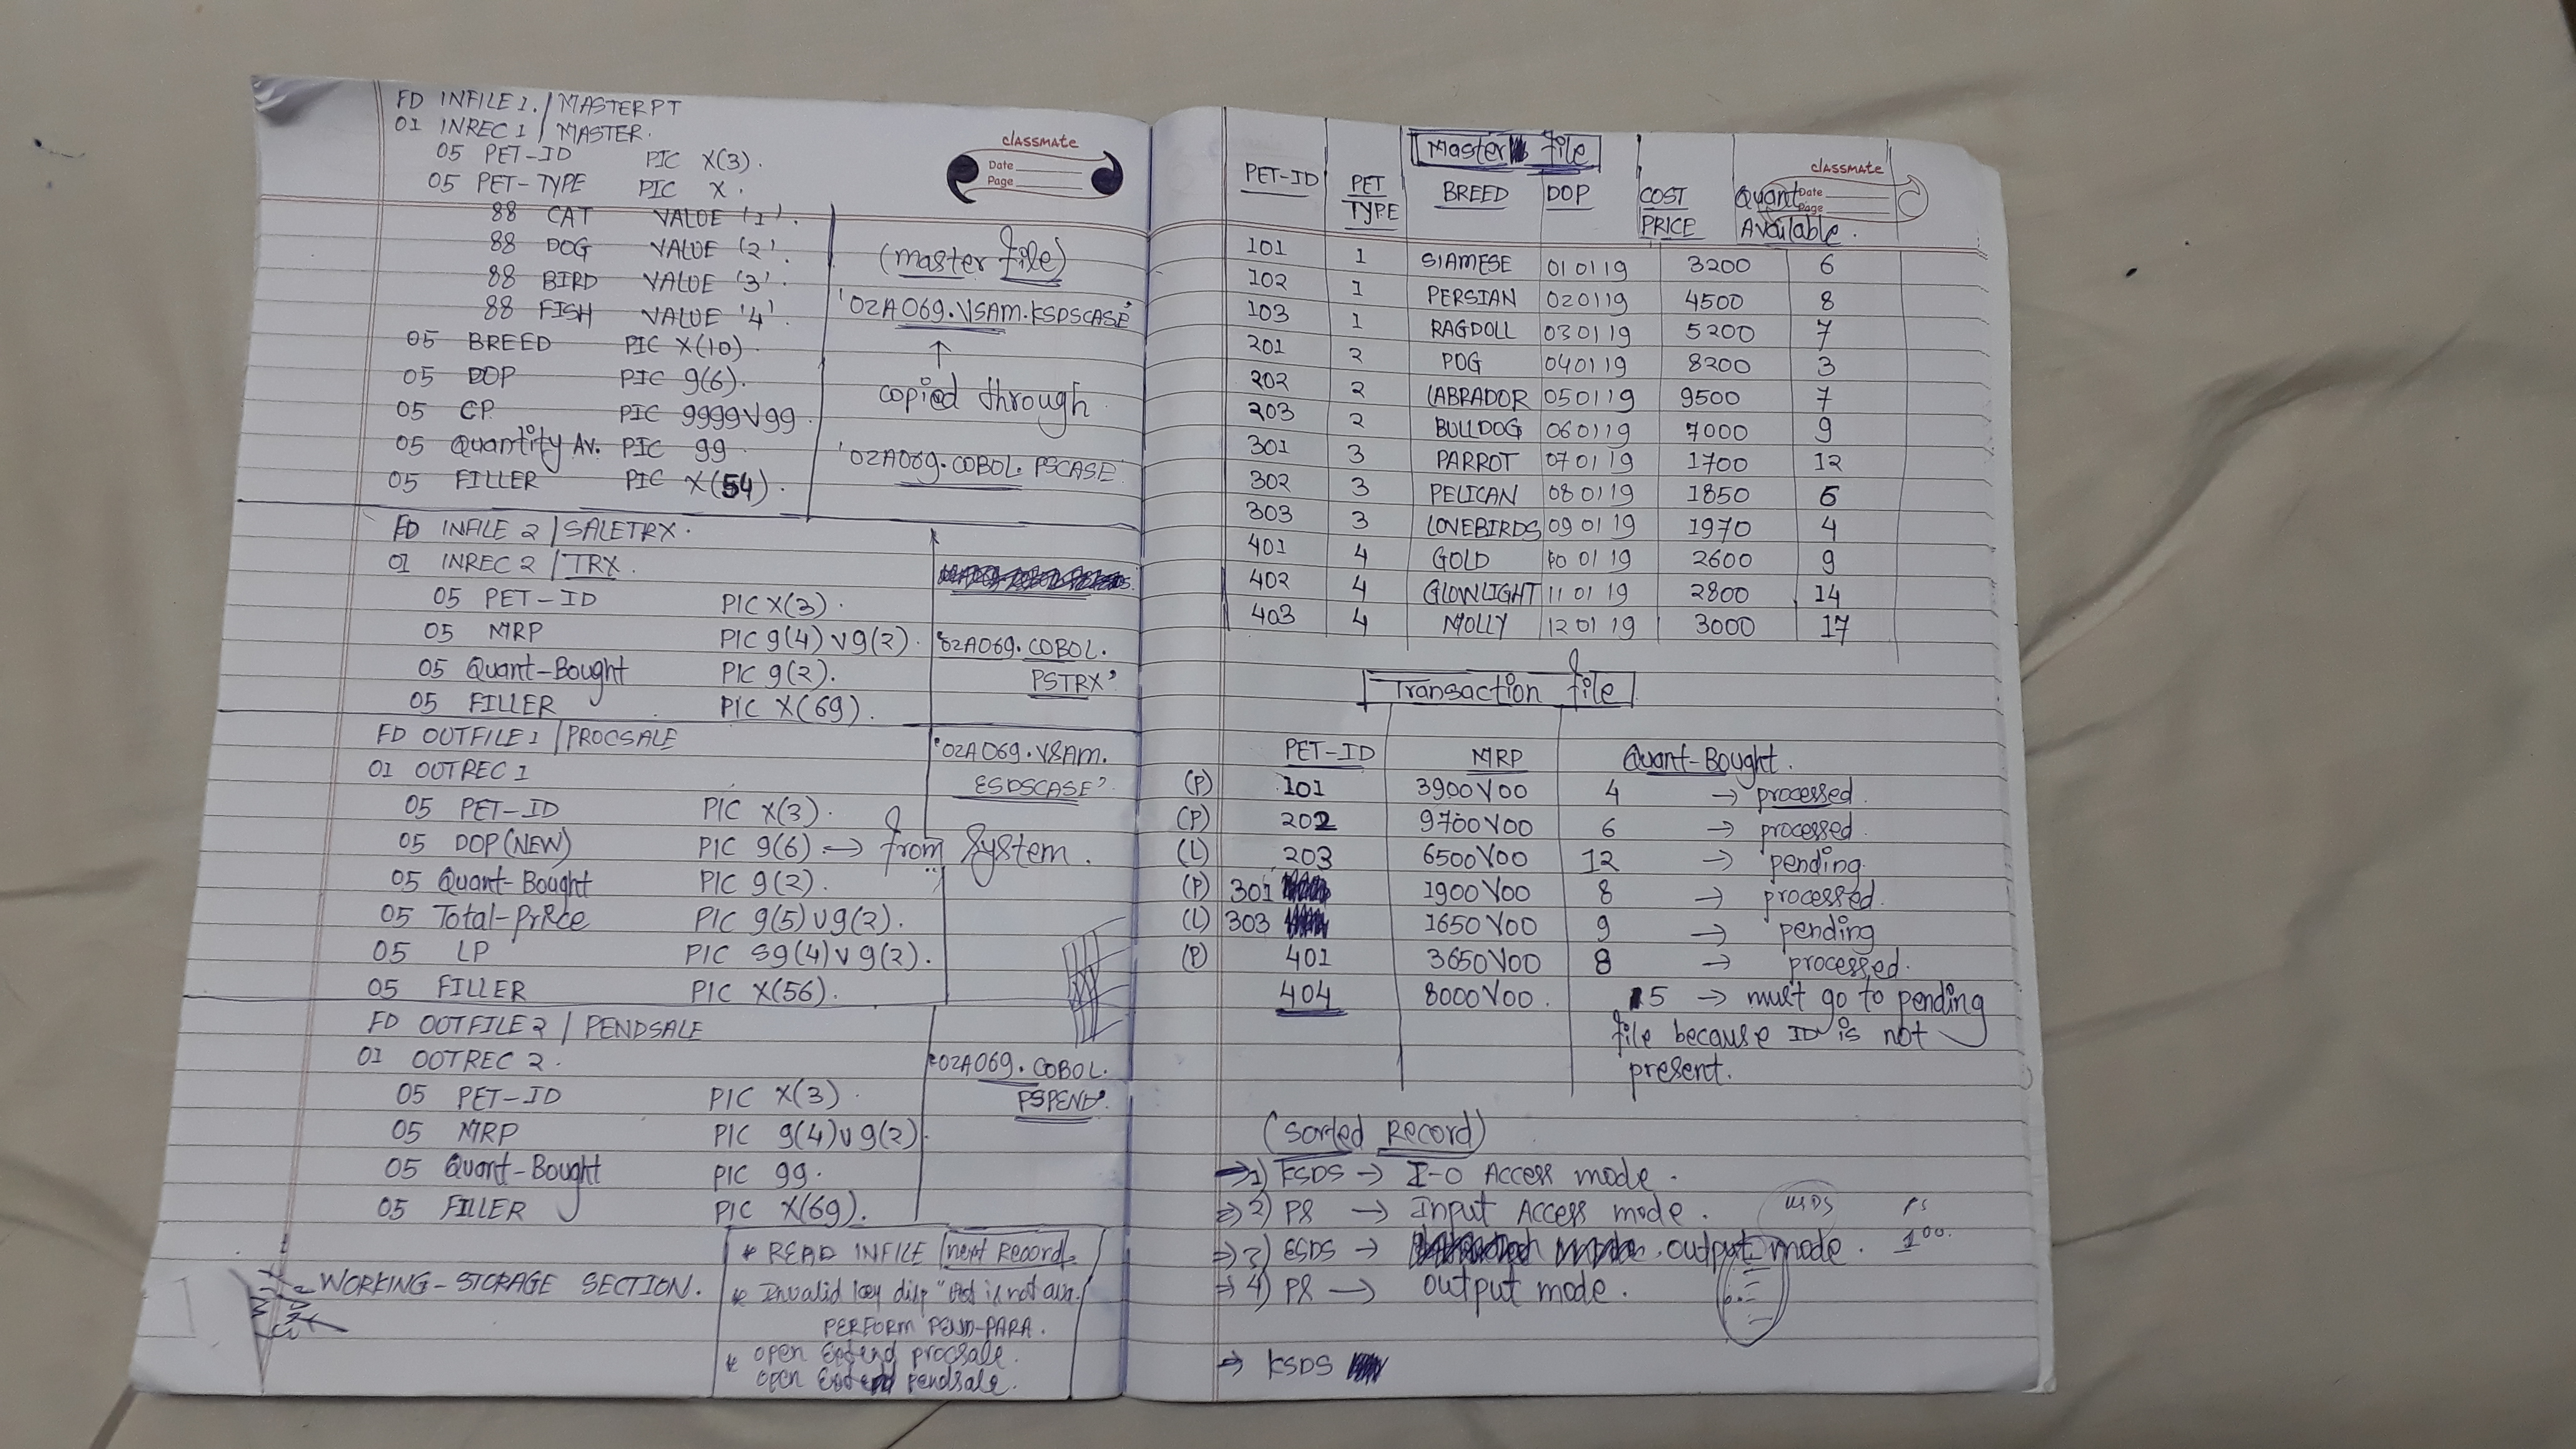 classmate
Date
Page
FD INFILE 1. / MASTERPT
01 INREC 1 / MASTER.
05 PET-ID PIC X(3).
05 PET-TYPE PIC X.
88 CAT VALUE '1'.
88 DOG VALUE '2'.
88 BIRD VALUE '3'.
88 FISH VALUE '4'.
05 BREED PIC X(10).
05 DOP PIC 9(6).
05 CP PIC 9999V99.
05 Quantity AV. PIC 99.
05 FILLER PIC X(54).
(master file)
'OZA069.VSAM.KSDSCASE'
↑
copied through
'OZA069.COBOL.PSCASE
FD INFILE 2 / SALETRX.
01 INREC 2 / TRX.
05 PET-ID PIC X(3).
05 MRP PIC 9(4)V9(2).
05 Quant-Bought PIC 9(2).
05 FILLER PIC X(69).
'OZA069.COBOL.
PSTRX'
FD OUTFILE 1 / PROCSALE
01 OUTREC 1
05 PET-ID PIC X(3).
05 DOP(NEW) PIC 9(6) → from system.
05 Quant-Bought PIC 9(2).
05 Total-Price PIC 9(5)V9(2).
05 LP PIC S9(4)V9(2).
05 FILLER PIC X(56).
'OZA069.VSAM.
ESDSCASE'
FD OUTFILE 2 / PENDSALE
01 OUTREC 2.
05 PET-ID PIC X(3).
05 MRP PIC 9(4)V9(2).
05 Quant-Bought PIC 99.
05 FILLER PIC X(69).
'OZA069.COBOL.
PSPEND'.
WORKING-STORAGE SECTION.
* READ INFILE next record.
* Invalid key disp "rec is not avn."
PERFORM PEND-PARA.
* open extend procsale.
open extend pendsale.
classmate
Date
Page
Master file
PET-ID PET TYPE BREED DOP COST PRICE Quant Available.
101 1 SIAMESE 010119 3200 6
102 1 PERSIAN 020119 4500 8
103 1 RAGDOLL 030119 5200 7
201 2 PUG 040119 8200 3
202 2 LABRADOR 050119 9500 7
203 2 BULLDOG 060119 7000 9
301 3 PARROT 070119 1700 12
302 3 PELICAN 080119 1850 5
303 3 LOVEBIRDS 090119 1970 4
401 4 GOLD 100119 2600 9
402 4 GLOWLIGHT 110119 2800 14
403 4 MOLLY 120119 3000 17
Transaction file
PET-ID MRP Quant-Bought.
(P) 101 3900V00 4 → processed.
(P) 202 9700V00 6 → processed
(L) 203 6500V00 12 → pending.
(P) 301 1900V00 8 → processed.
(L) 303 1650V00 9 → pending
(P) 401 3650V00 8 → processed.
404 8000V00. 5 → must go to pending
file because ID is not
present.
(sorted record)
→ 1) KSDS → I-O Access mode.
→ 2) PS → Input Access mode.
→ 3) ESDS → output mode.
→ 4) PS → output mode.
→ KSDS